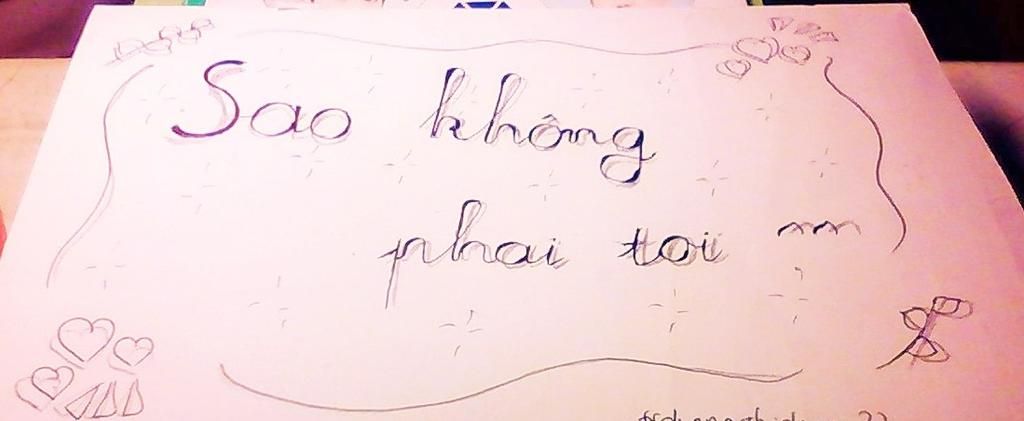 Sao không
phai toi